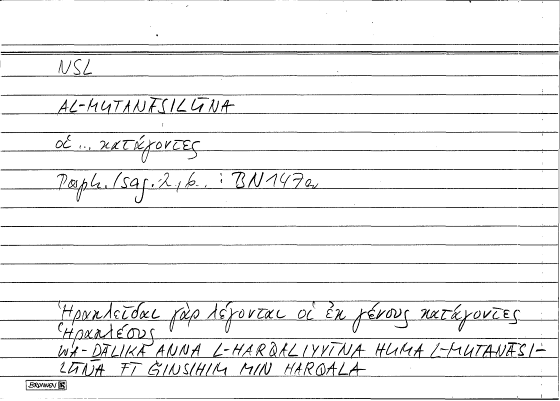 NSL
AL-MUTANĀSILŪNA
οἱ ... κατάγοντες
Porph. Isag. 2, 6.. : BN 147a
Ἡρακλεῖδαι γὰρ λέγονται οἱ ἐκ γένους κατάγοντες
Ἡρακλέους
WA-ḎĀLIKA ANNA L-HARQALIYYĪNA HUMA L-MUTANĀSI-
LŪNA FĪ ǦINSIHIM MIN HARQALA